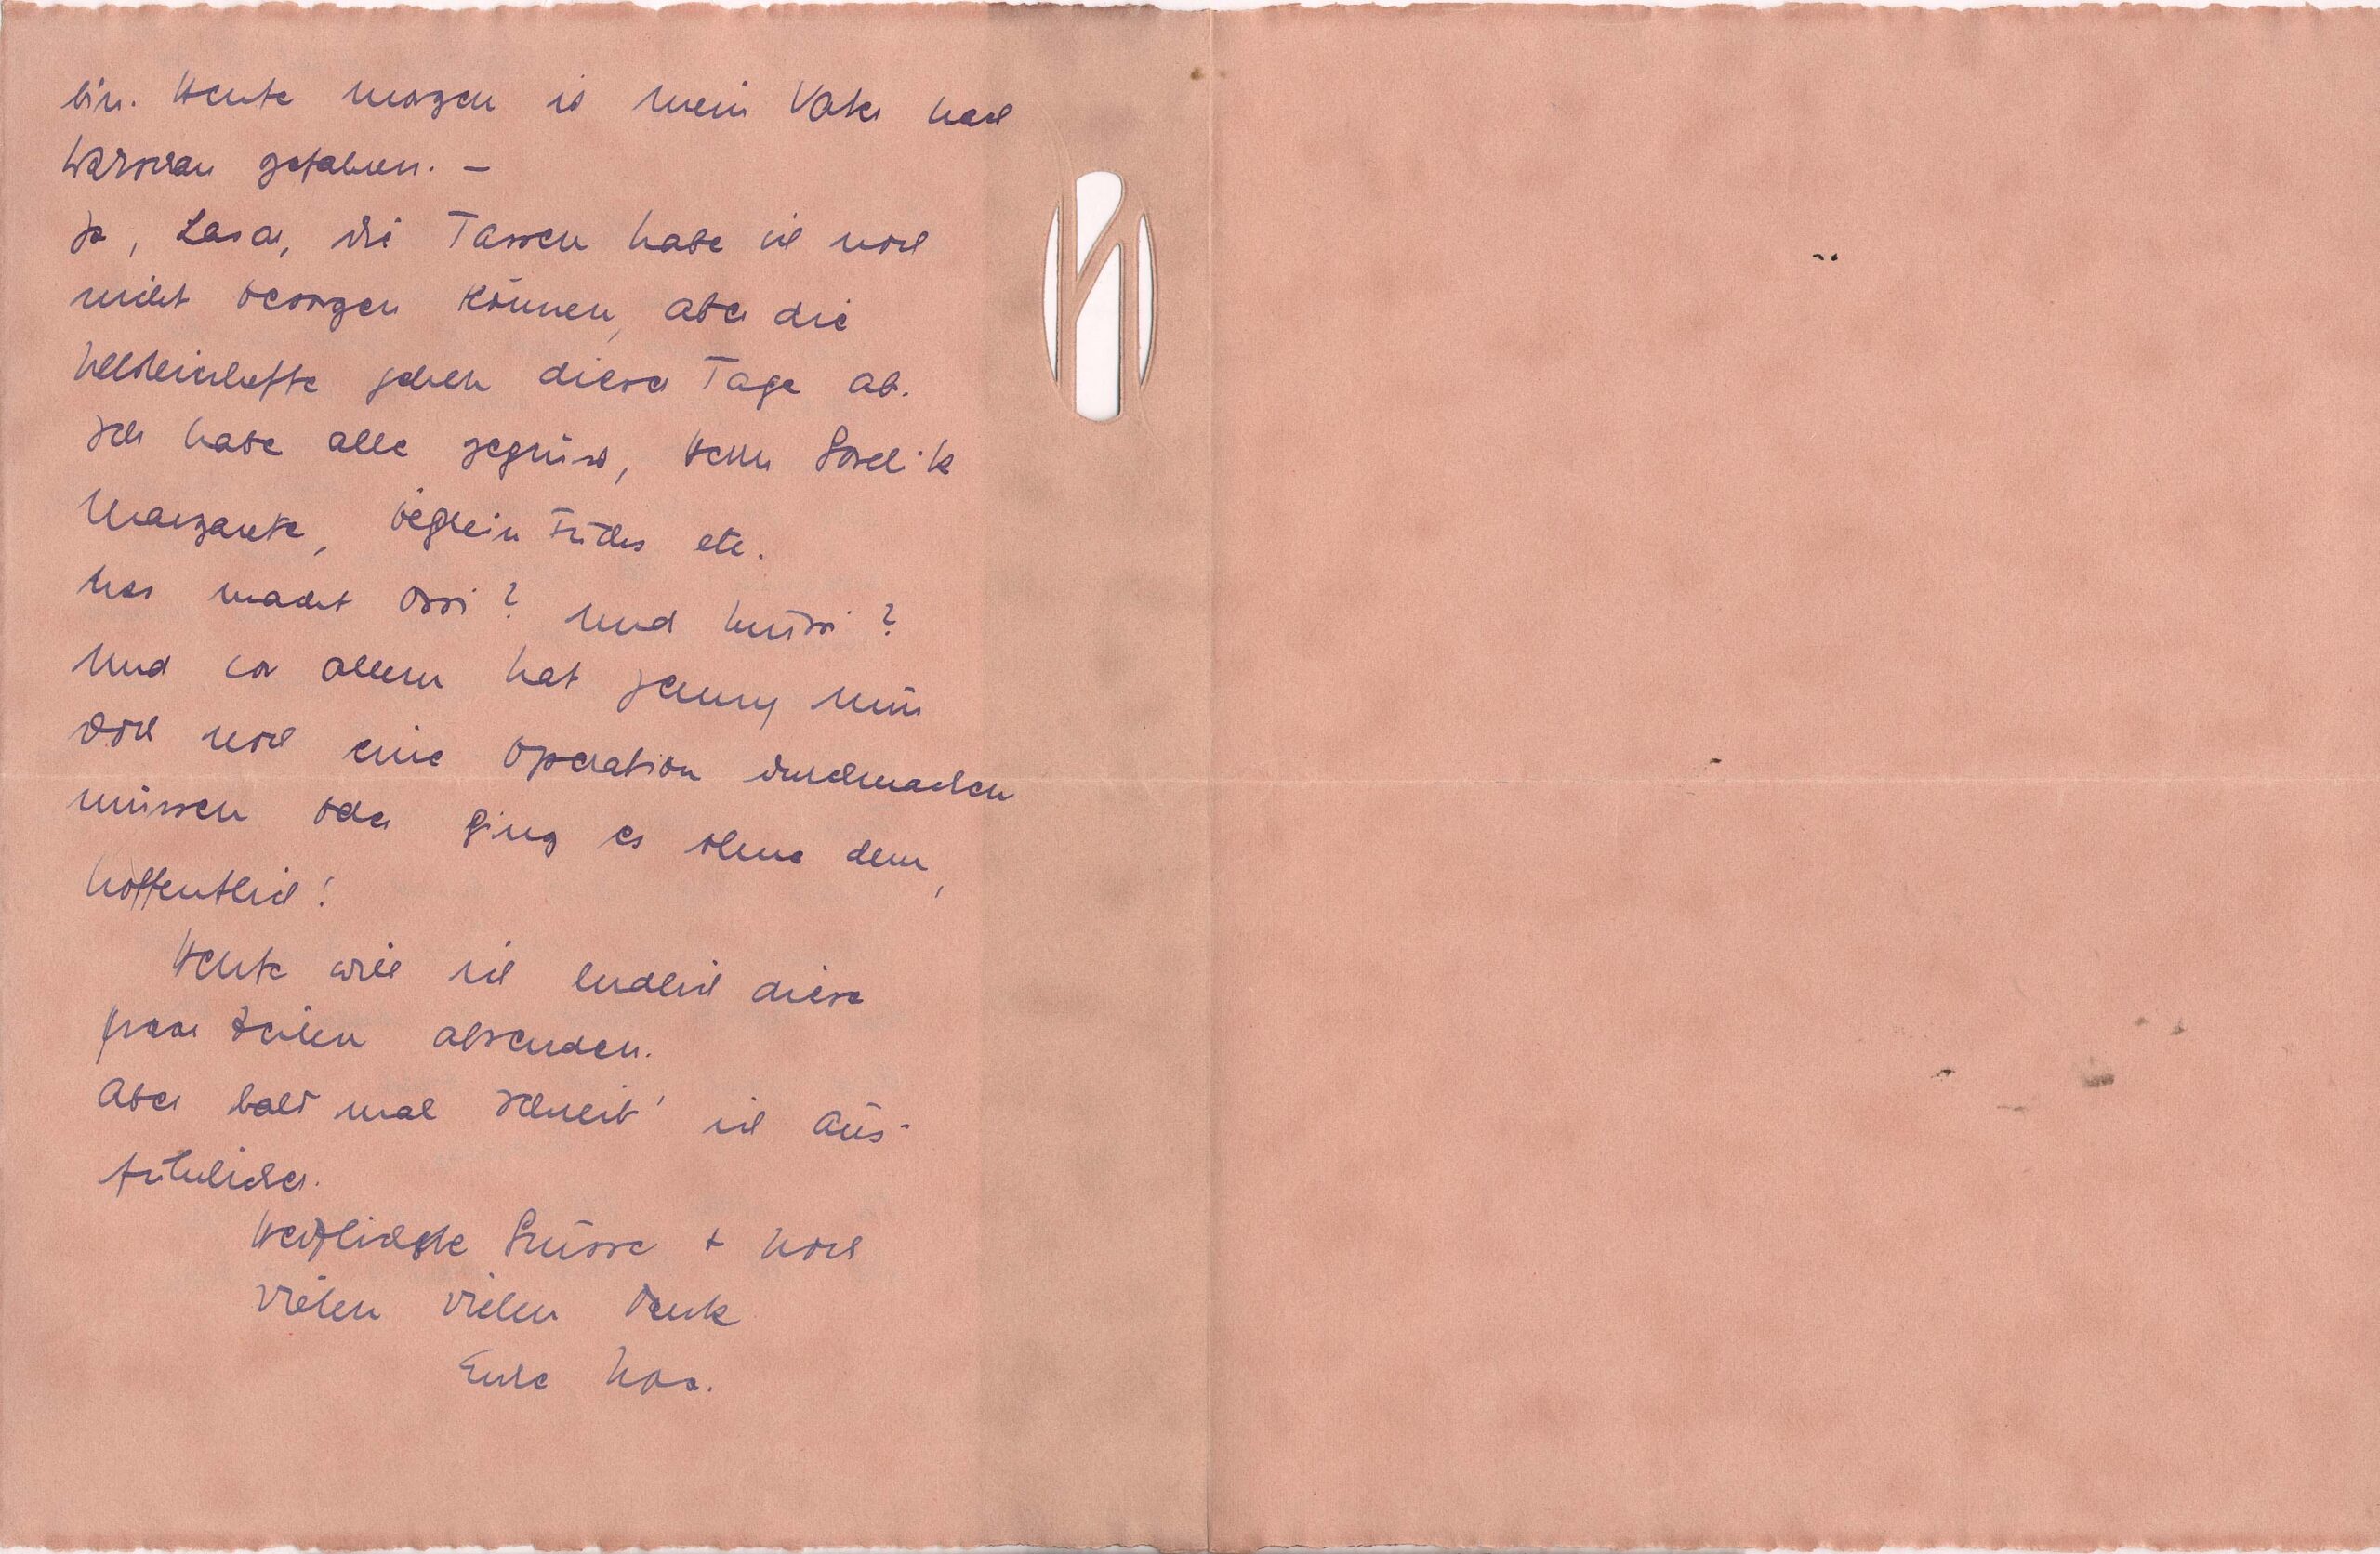 bin. Heute morgen is mein Vater nach
Warschau gefahren. –
Ja, Lasar, die Tassen habe ich noch
nicht besorgen können, aber die
gehen dieser Tage ab.
Ich habe alle gegrüsst, Herrn Gorelik
etc.
Was macht Ossi? Und Mussi?
Und vor allem hat Jenny nun
doch noch eine Operation durchmachen
müssen oder ging es ohne dem,
hoffentlich!
Heute will ich endlich diese
paar Zeilen absenden.
Aber bald mal schreib' ich aus-
führlicher.
Herzlichste Grüsse + noch
vielen vielen Dank
Eure